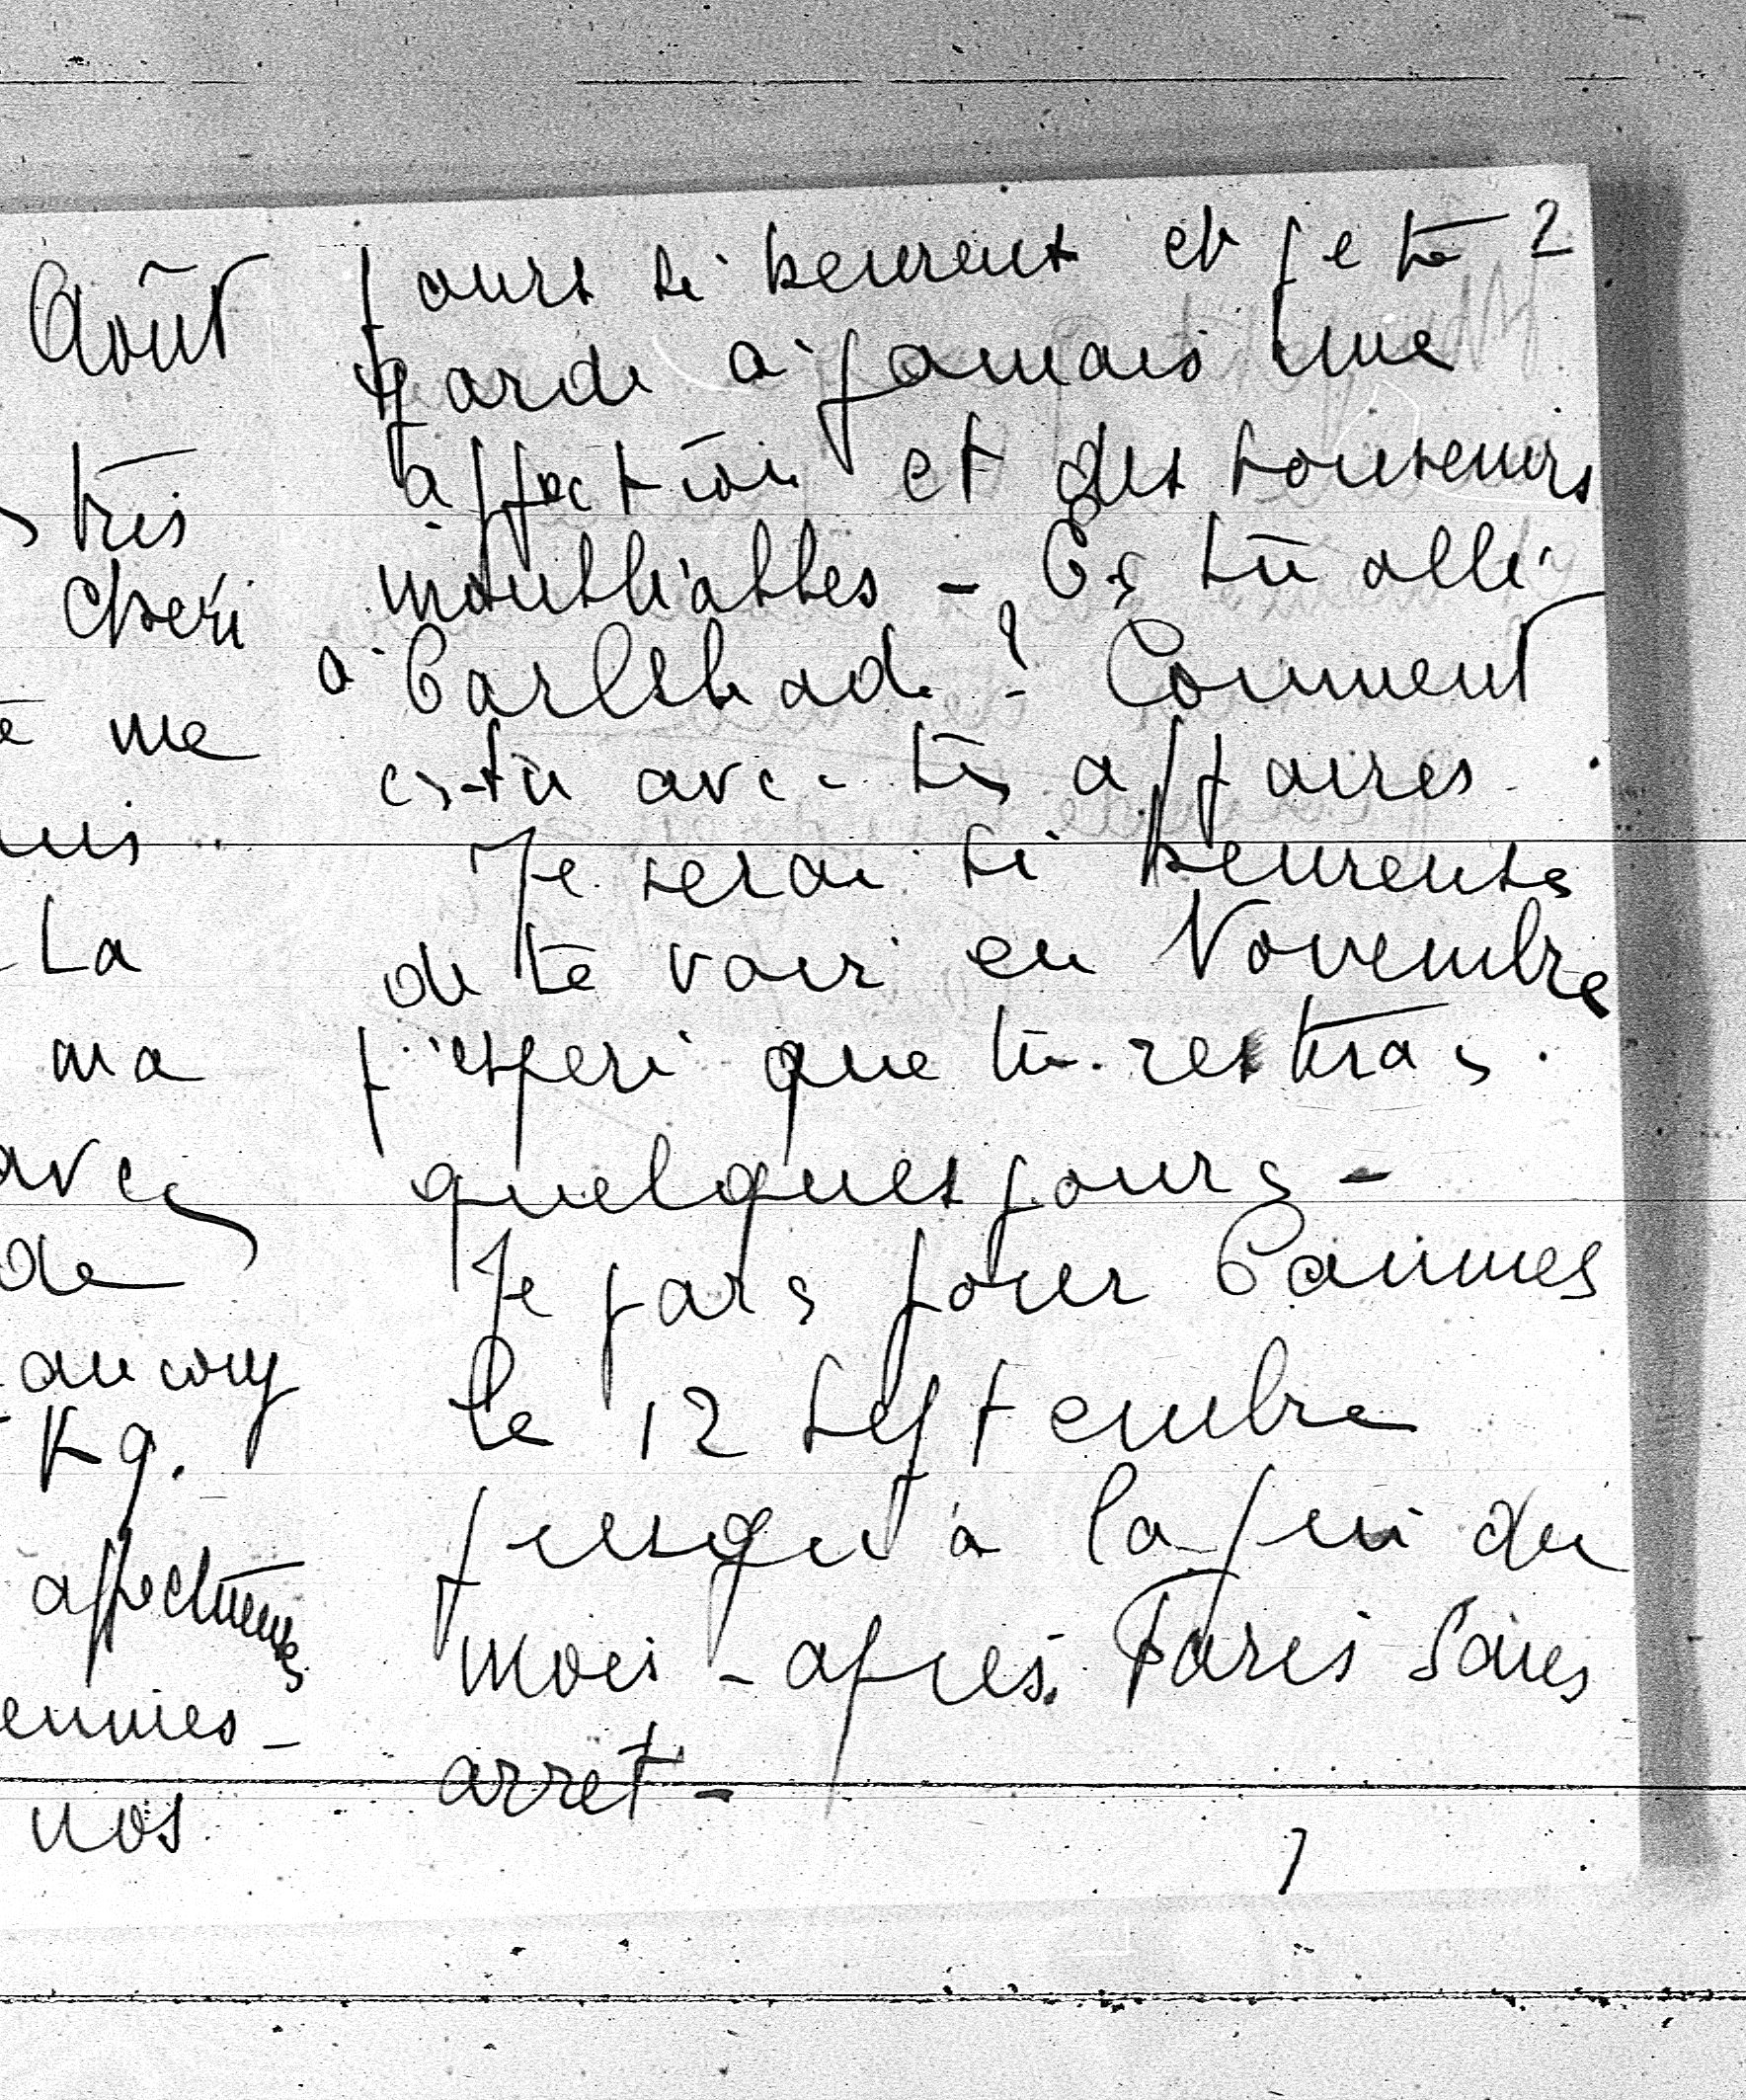 Août
très
cheri
me
La
ma
avec
de
Kg.
nos
2
jours si heureux et je te
garde a jamais une
affection et des souvenirs
inoubliables - Es tu allé
a Carlsbad ? Comment
es-tu avec tes affaires.
Je serai si heureuse
de te voir en Novembre
j'espere que tu restras
quelques jours -
Je pars pour Cannes
le 12 Septembre
jusqu'à la fin du
mois - après Paris Sans
arret -